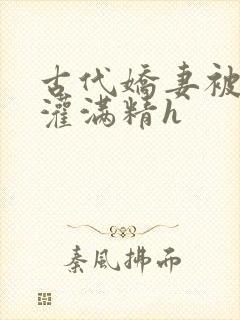 古代嬌妻被
灌滿精h
秦風拂而